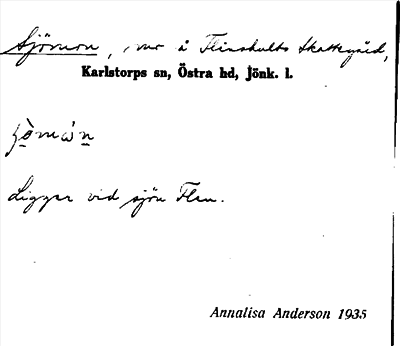 Sjömon, mo å Flinshults skattegård,
Karlstorps sn, Östra hd, Jönk. l.
Ligger vid sjön Flen.
Annalisa Anderson 1935